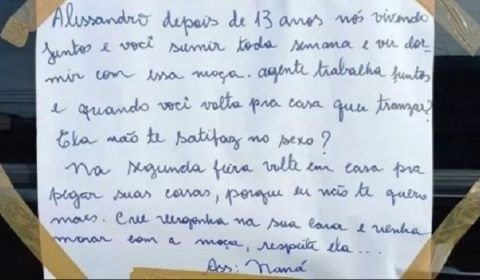 Alissandro depois de 13 anos nós vivendo
juntos e você sumir toda semana e vir dor-
mir com essa moça. agente trabalha juntos
e quando você volta pra casa quer tranzar?
Eka não te satifaz no sexo?
Na segunda feira volte em casa pra
pegar suas coisas, porque eu não te quero
mais. Crie vergonha na sua cara e venha
morar com a moça, respeite ela...
Ass: Naná